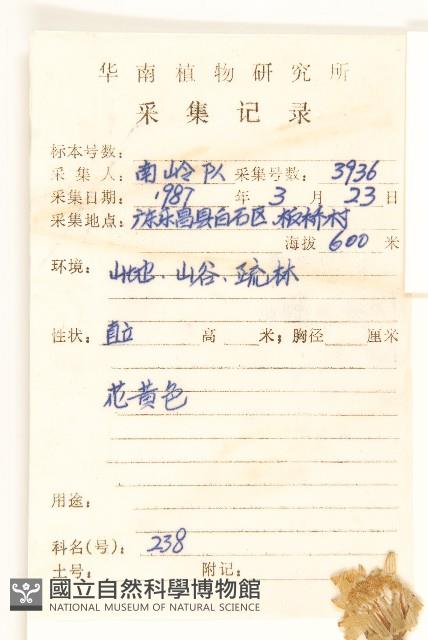 华南植物研究所
采集记录
标本号数:
采集人: 南岭队 采集号数: 3936
采集日期: 1987 年 3 月 23 日
采集地点: 广东乐昌县白石区、板桥村
海拔 600 米
环境: 山地、山谷、疏林
性状: 直立 高 米; 胸径 厘米
花黄色
用途:
科名(号): 238
土号: 附记:
國立自然科學博物館
NATIONAL MUSEUM OF NATURAL SCIENCE